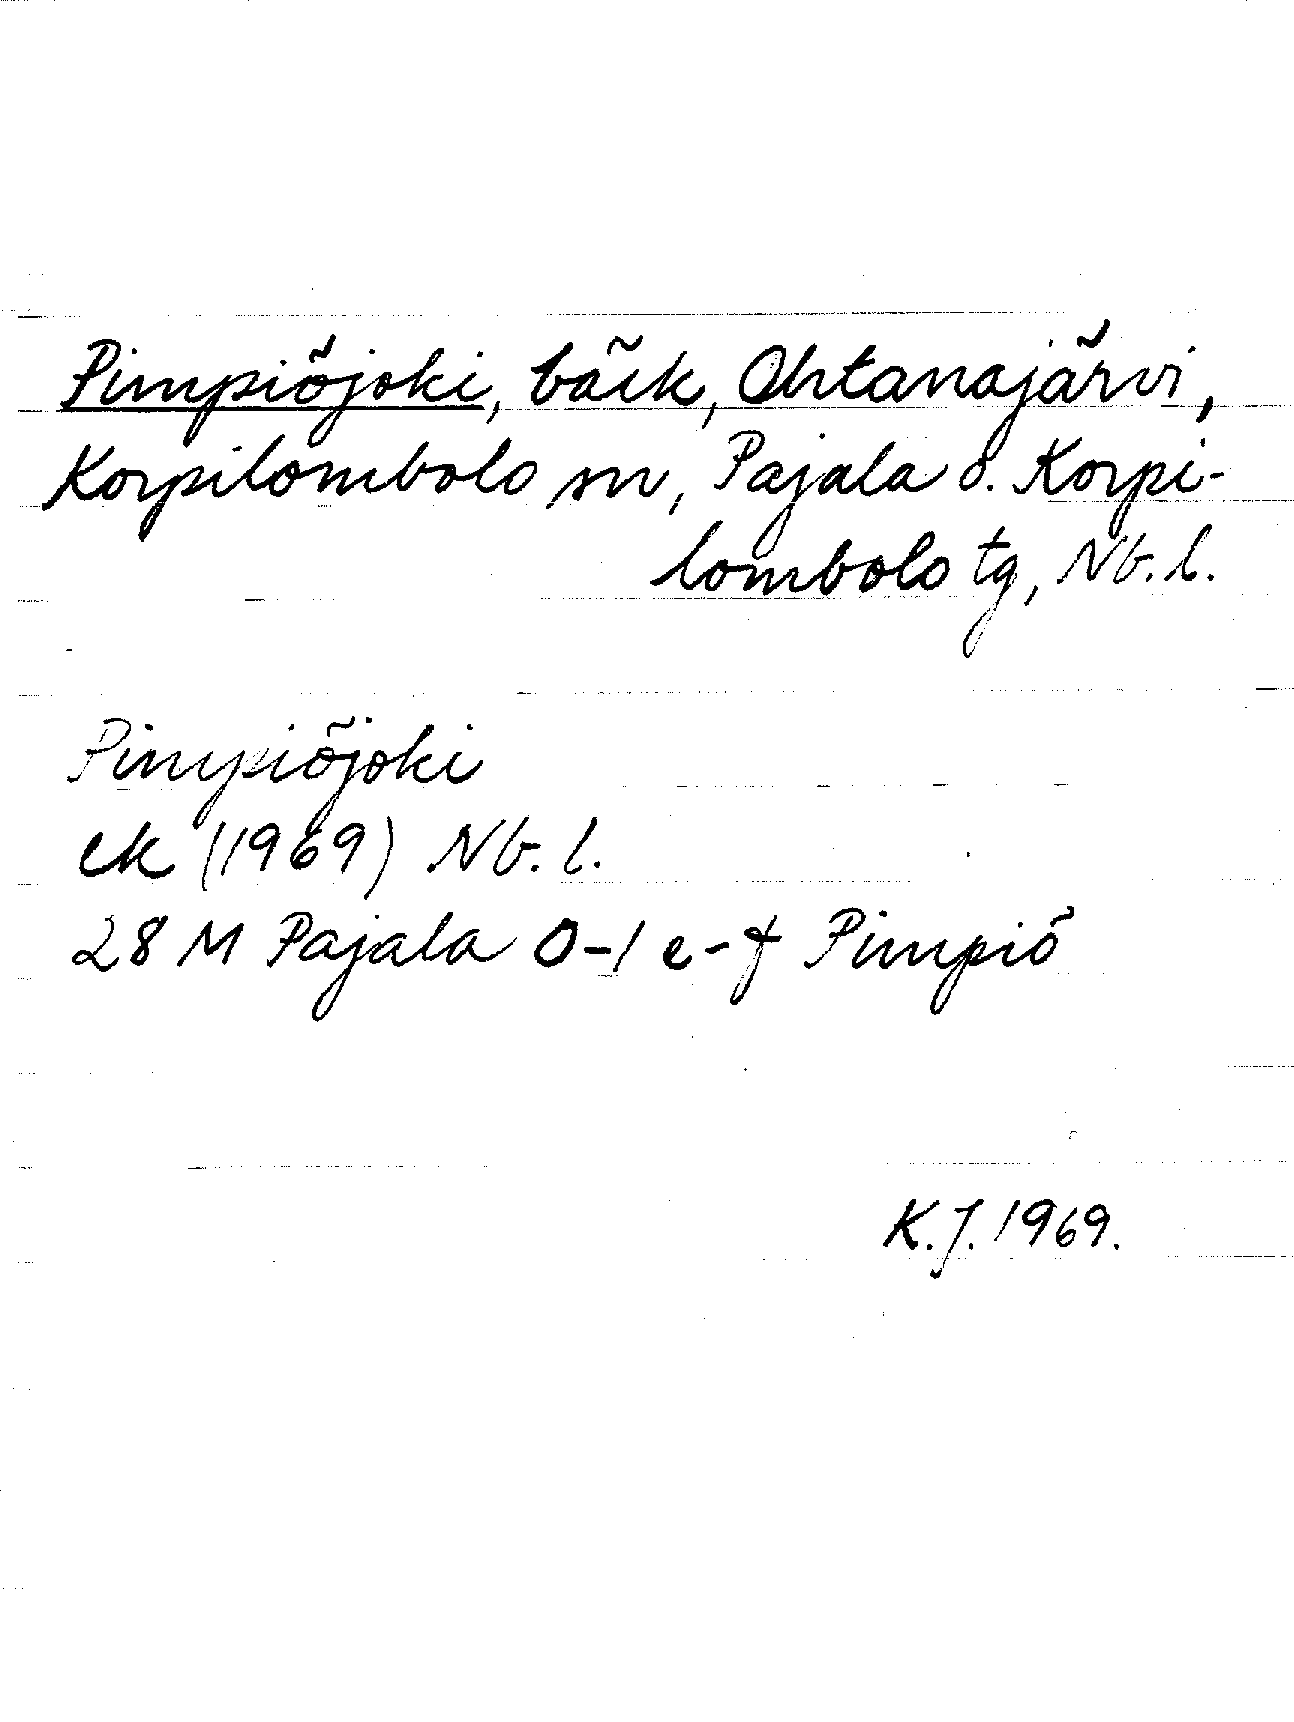 Pimpiöjoki, bäck, Ohtanajärvi,
Korpilombolo sn, Pajala o. Korpi-
lombolo tg, Nb. l.
Pimpiöjoki
ek (1969) Nb. l.
28 M Pajala 0-1 e-f Pimpiö
K.J. 1969.